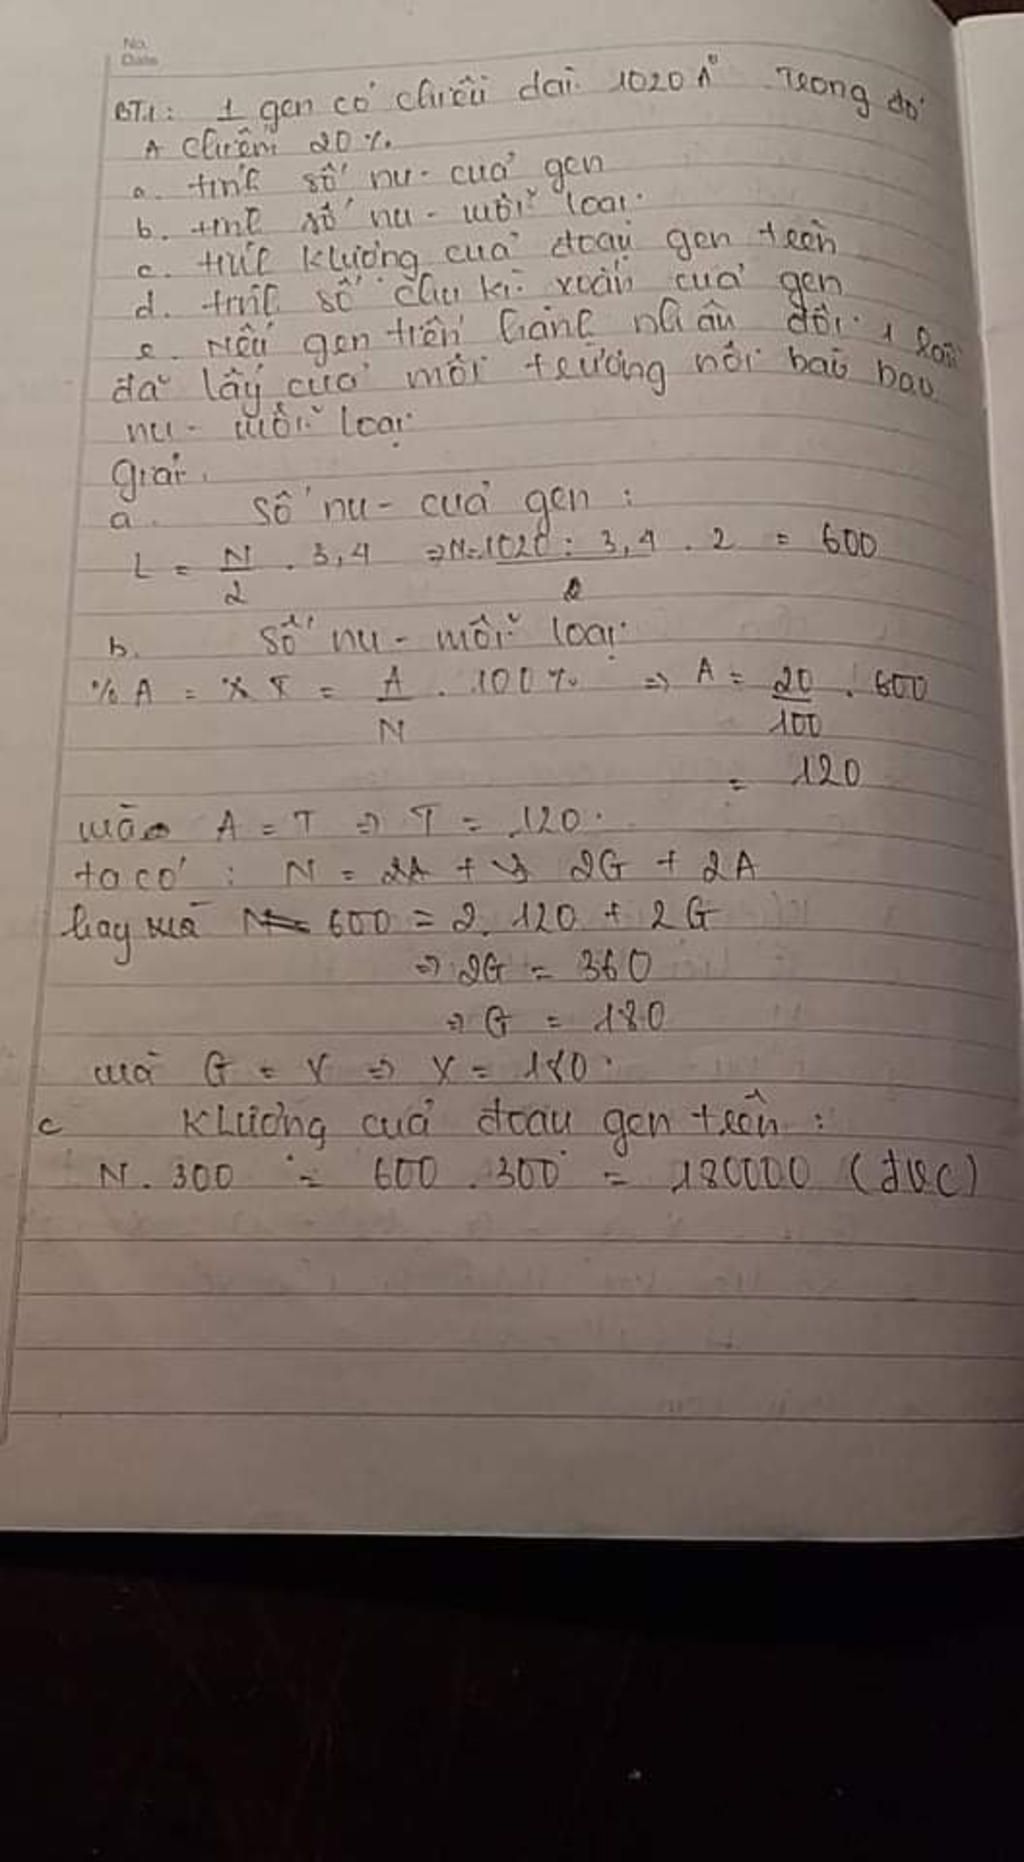 No.
Date
BT1: 1 gen có chiều dài 1020 A° Trong đó
A chiếm 20%.
a. tính số nu- của gen
b. tính số nu- mỗi loại.
c. tính K lượng của đoạn gen trên
d. tính số chu kì xoắn của gen
e. Nếu gen trên hành nhân đôi 1 lần
đã lấy của môi trường nội bào bao
nu- mỗi loại
Giải.
a. số nu- của gen :
L = N/2 . 3,4 => N = 1020 : 3,4 . 2 = 600
2
b. số nu- mỗi loại
% A = % T = A/N . 100% => A = 20/100 . 600
= 120
mà A = T => T = 120.
ta có : N = 2A + 2G + 2A
hay mà N = 600 = 2. 120 + 2G
=> 2G = 360
=> G = 180
mà G = X => X = 180.
c K Lượng của đoạn gen trên :
N. 300 = 600 . 300 = 180000 (đvC)